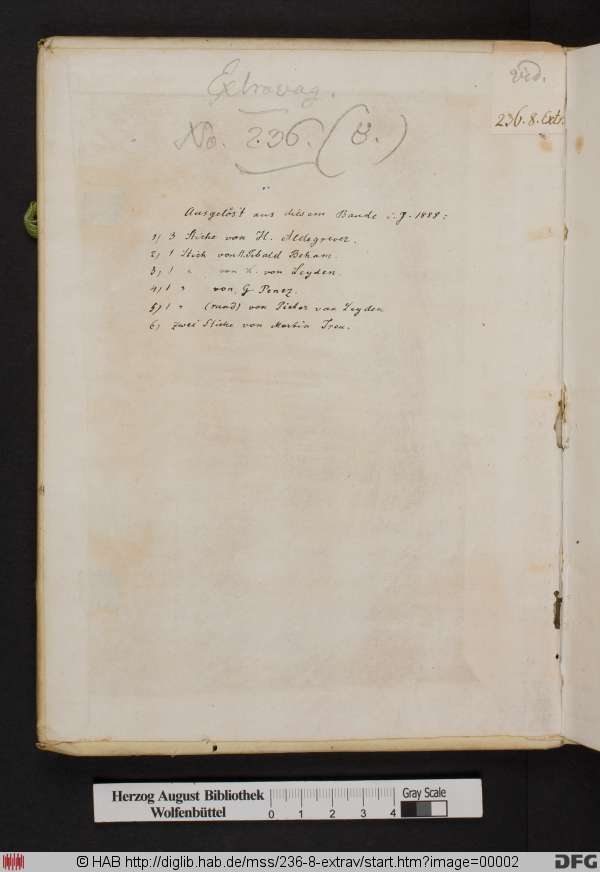 Extravag.
No. 236. (8.)
vid.
236. 8. Extr.
Ausgelöst aus diesem Bande i. J. 1888:
1) 3 Stiche von H. Aldegrever.
2) 1 Stich von H. Sebald Beham.
3) 1 " von L. von Leyden.
4) 1 " von G. Penez.
5) 1 " (rund) von Pieter van Leyden
6) zwei Stiche von Martin Treu.
Herzog August Bibliothek
Wolfenbüttel
0 1 2 3 4
Gray Scale
© HAB http://diglib.hab.de/mss/236-8-extrav/start.htm?image=00002
DFG